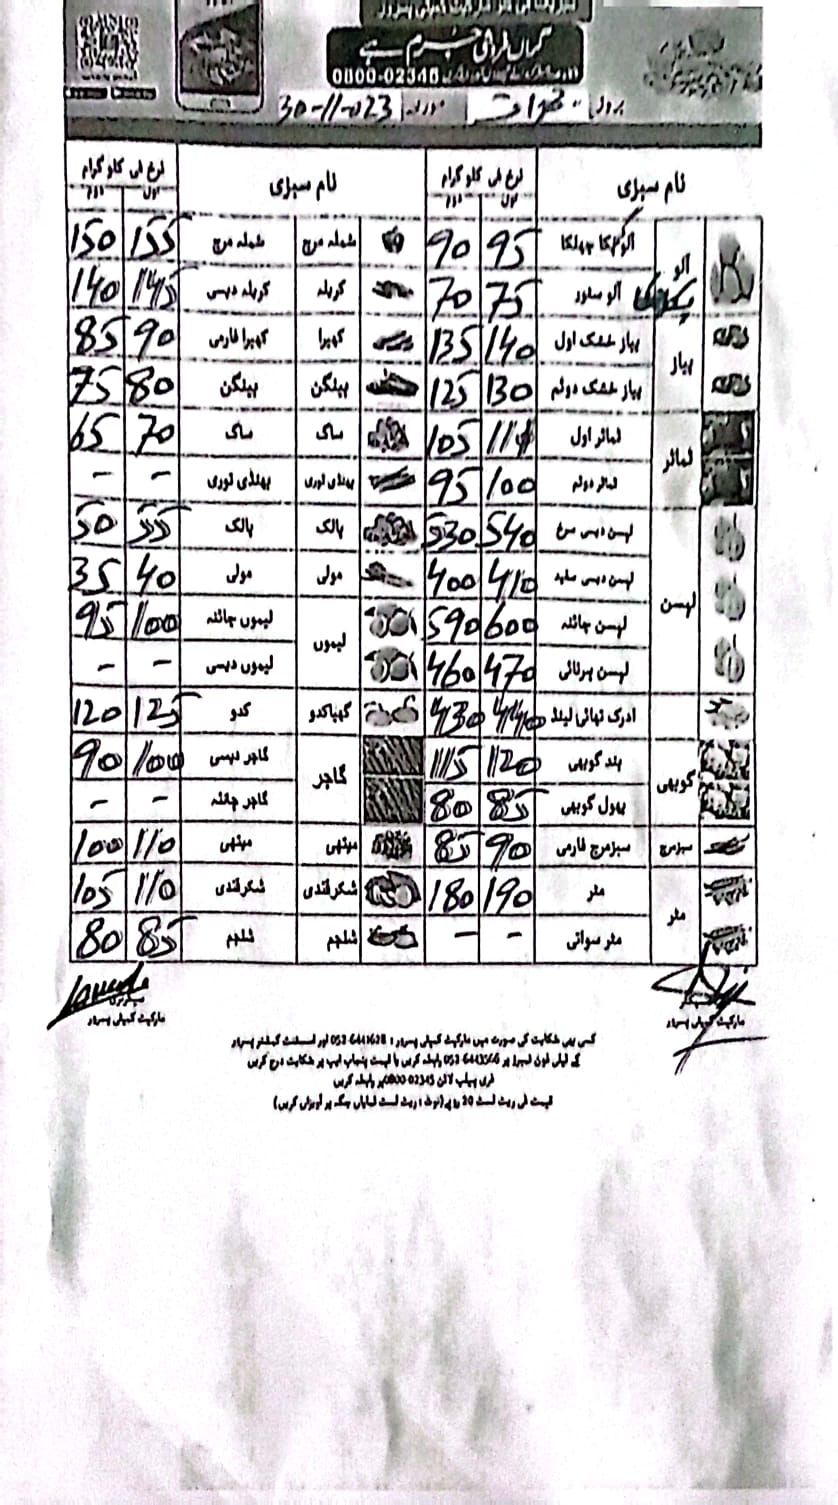 گراں فروشی جرم ہے
0800-02345
بروز جمعرات مورخہ 30-11-2023
نام سبزی نرخ فی کلو گرام اول دوم نام سبزی نرخ فی کلو گرام اول دوم
آلو آلو کچا چھلکا 95 90 شملہ مرچ شملہ مرچ 155 150
آلو سٹور 75 70 کریلہ کریلہ دیسی 145 140
پیاز پیاز خشک اول 140 135 کھیرا کھیرا فارمی 90 85
پیاز خشک دوئم 130 125 بینگن بینگن 80 75
ٹماٹر ٹماٹر اول 110 105 ساگ ساگ 70 65
ٹماٹر دوئم 100 95 بھنڈی توری بھنڈی توری - -
لہسن لہسن دیسی سرخ 540 530 پالک پالک 55 50
لہسن دیسی سفید 410 400 مولی مولی 40 35
لہسن چائنہ 600 590 لیموں لیموں چائنہ 100 95
لہسن ہرنائی 470 460 لیموں دیسی - -
ادرک تھائی لینڈ 440 430 گھیا کدو کدو 125 120
گوبھی بند گوبھی 120 115 گاجر گاجر دیسی 100 90
پھول گوبھی 85 80 گاجر چائنہ - -
سبز مرچ سبز مرچ فارمی 90 85 میتھی میتھی 110 100
مٹر مٹر 190 180 شکر قندی شکر قندی 110 105
مٹر سواتی - - شلجم شلجم 85 80
مارکیٹ کمیٹی پسرور
مارکیٹ کمیٹی پسرور
کسی بھی شکایت کی صورت میں مارکیٹ کمیٹی پسرور: 052-6441628 اور اسسٹنٹ کمشنر پسرور
کے ٹیلی فون نمبرز پر 052-6443566 رابطہ کریں یا قیمت پنجاب ایپ پر شکایت درج کریں
فری ہیلپ لائن 0800-02345 پر رابطہ کریں
قیمت فی ریٹ لسٹ 20 روپے (نوٹ: ریٹ لسٹ نمایاں جگہ پر آویزاں کریں)